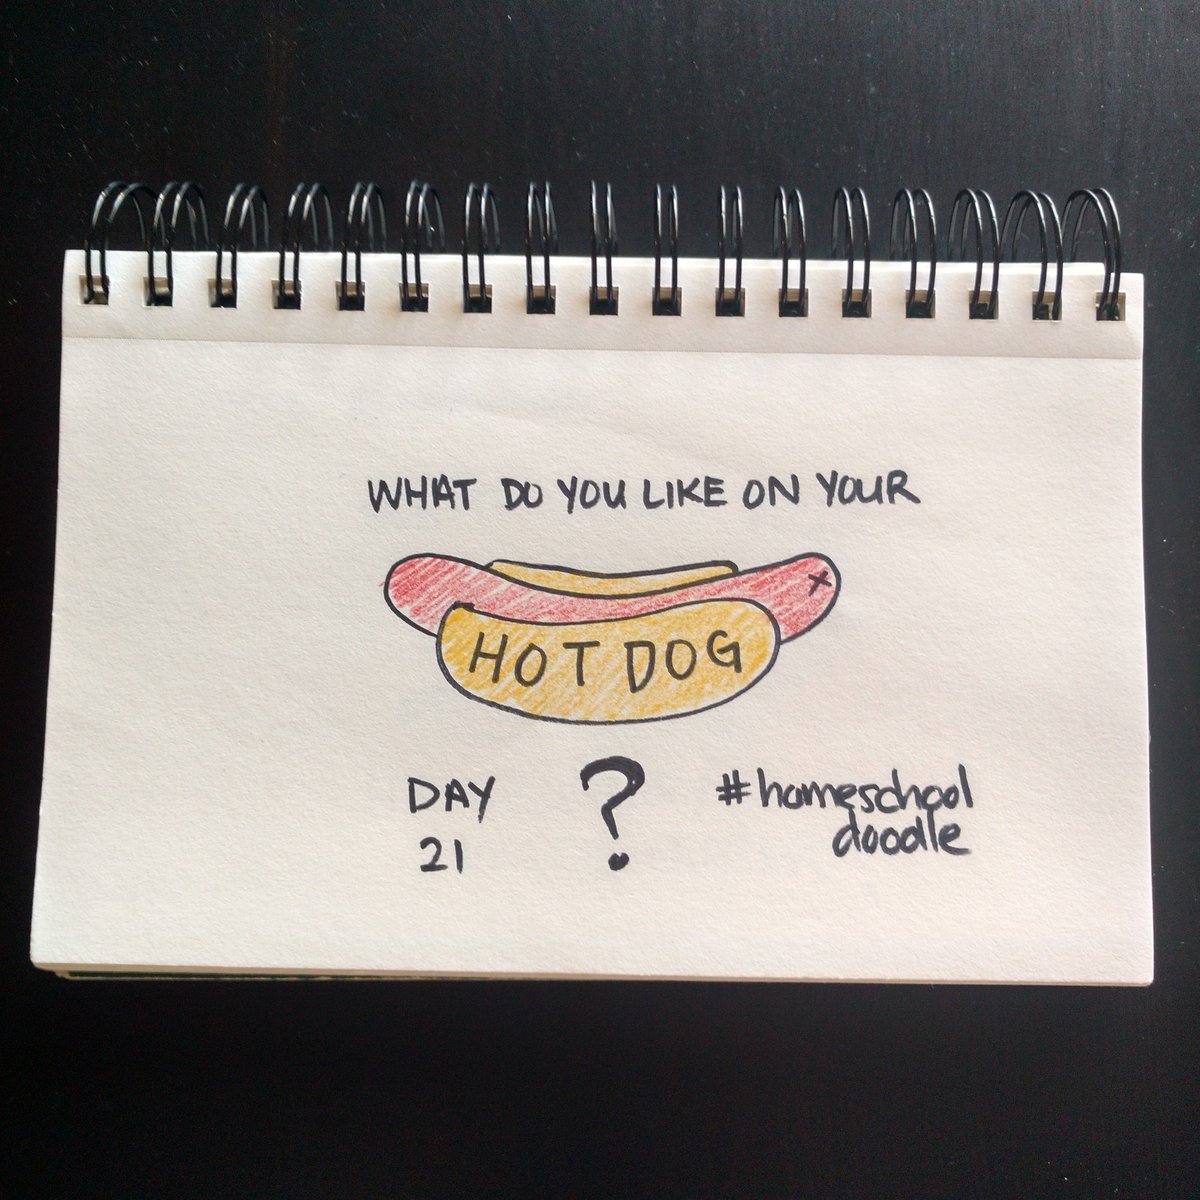 WHAT DO YOU LIKE ON YOUR
HOT DOG
?
DAY
21
#homeschool
doodle